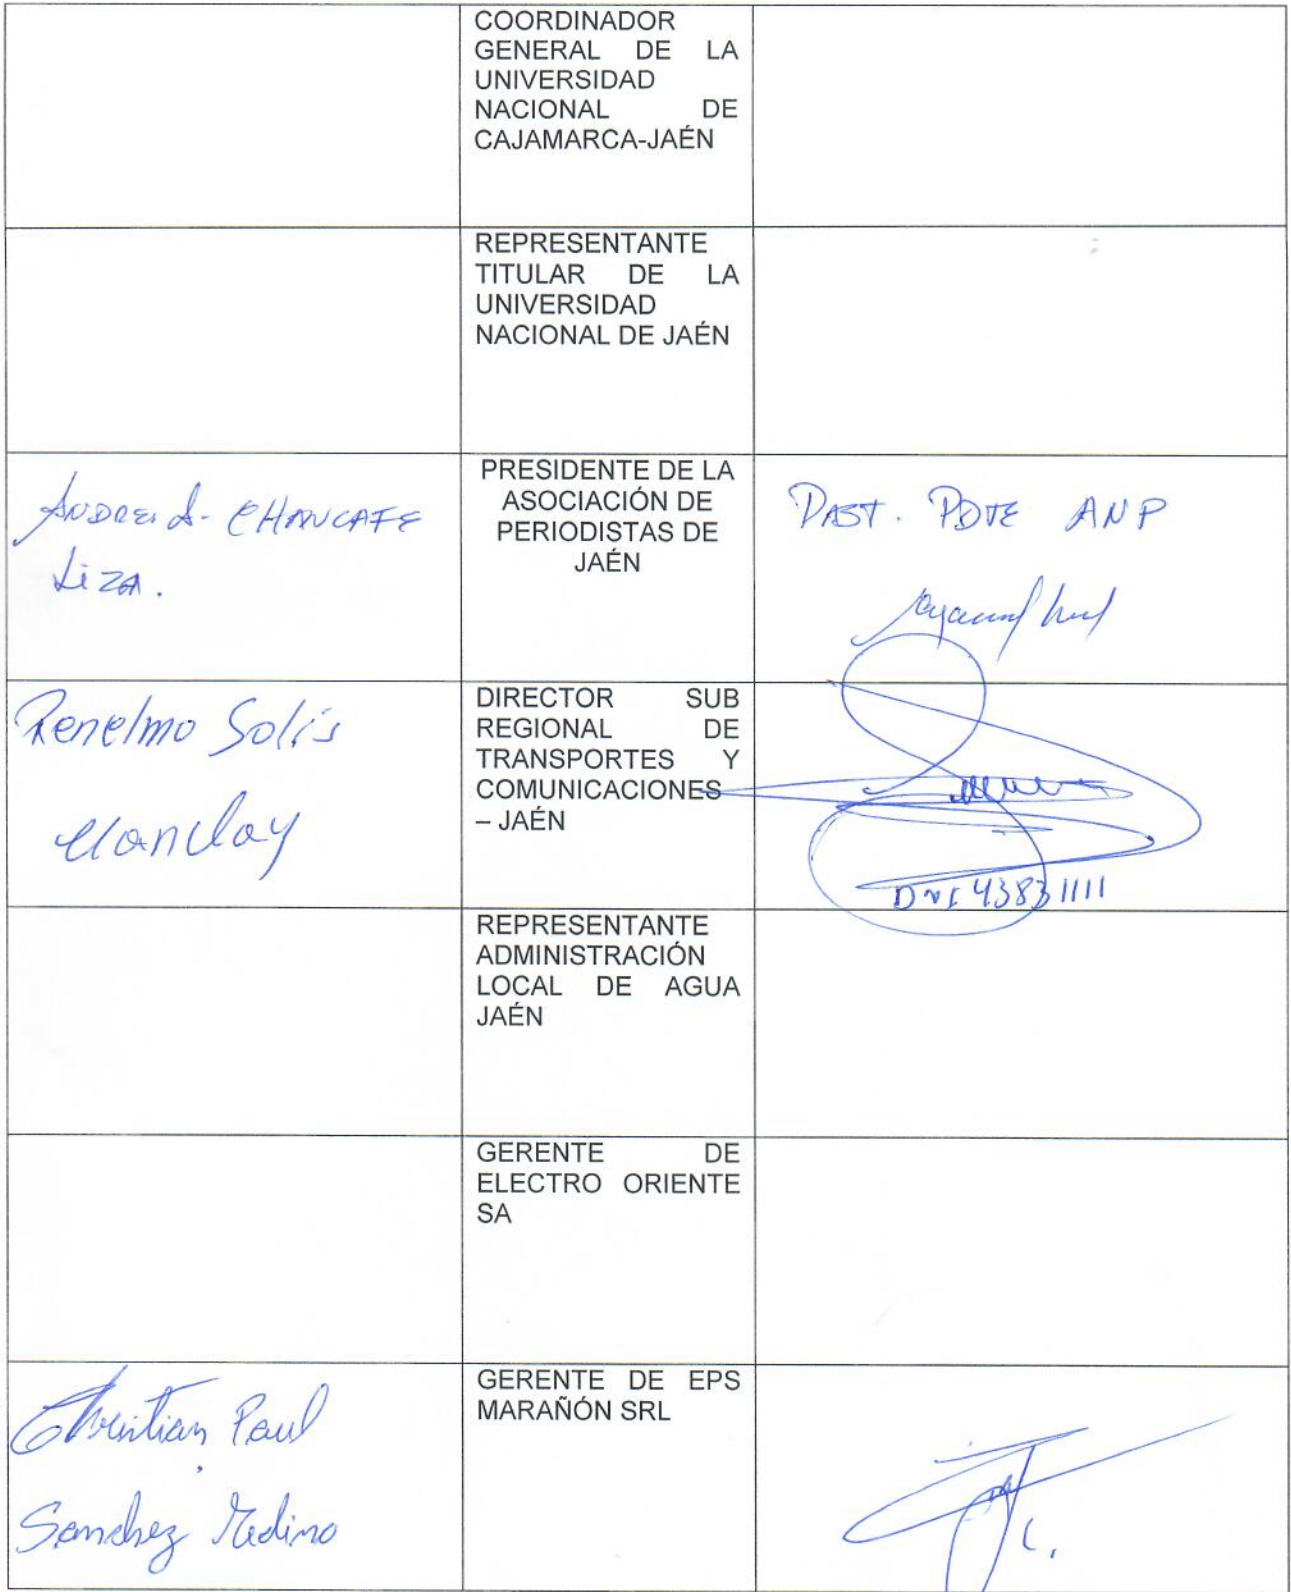 COORDINADOR
GENERAL DE LA
UNIVERSIDAD
NACIONAL DE
CAJAMARCA-JAÉN
REPRESENTANTE
TITULAR DE LA
UNIVERSIDAD
NACIONAL DE JAÉN
CHANCAFE
Liza.
PRESIDENTE DE LA
ASOCIACIÓN DE
PERIODISTAS DE
JAÉN
PAST. PDTE ANP
Renelmo Solis
DIRECTOR SUB
REGIONAL DE
TRANSPORTES Y
COMUNICACIONES
– JAÉN
DNI 43831111
REPRESENTANTE
ADMINISTRACIÓN
LOCAL DE AGUA
JAÉN
GERENTE DE
ELECTRO ORIENTE
SA
Christian Paul
Sanchez Medino
GERENTE DE EPS
MARAÑÓN SRL